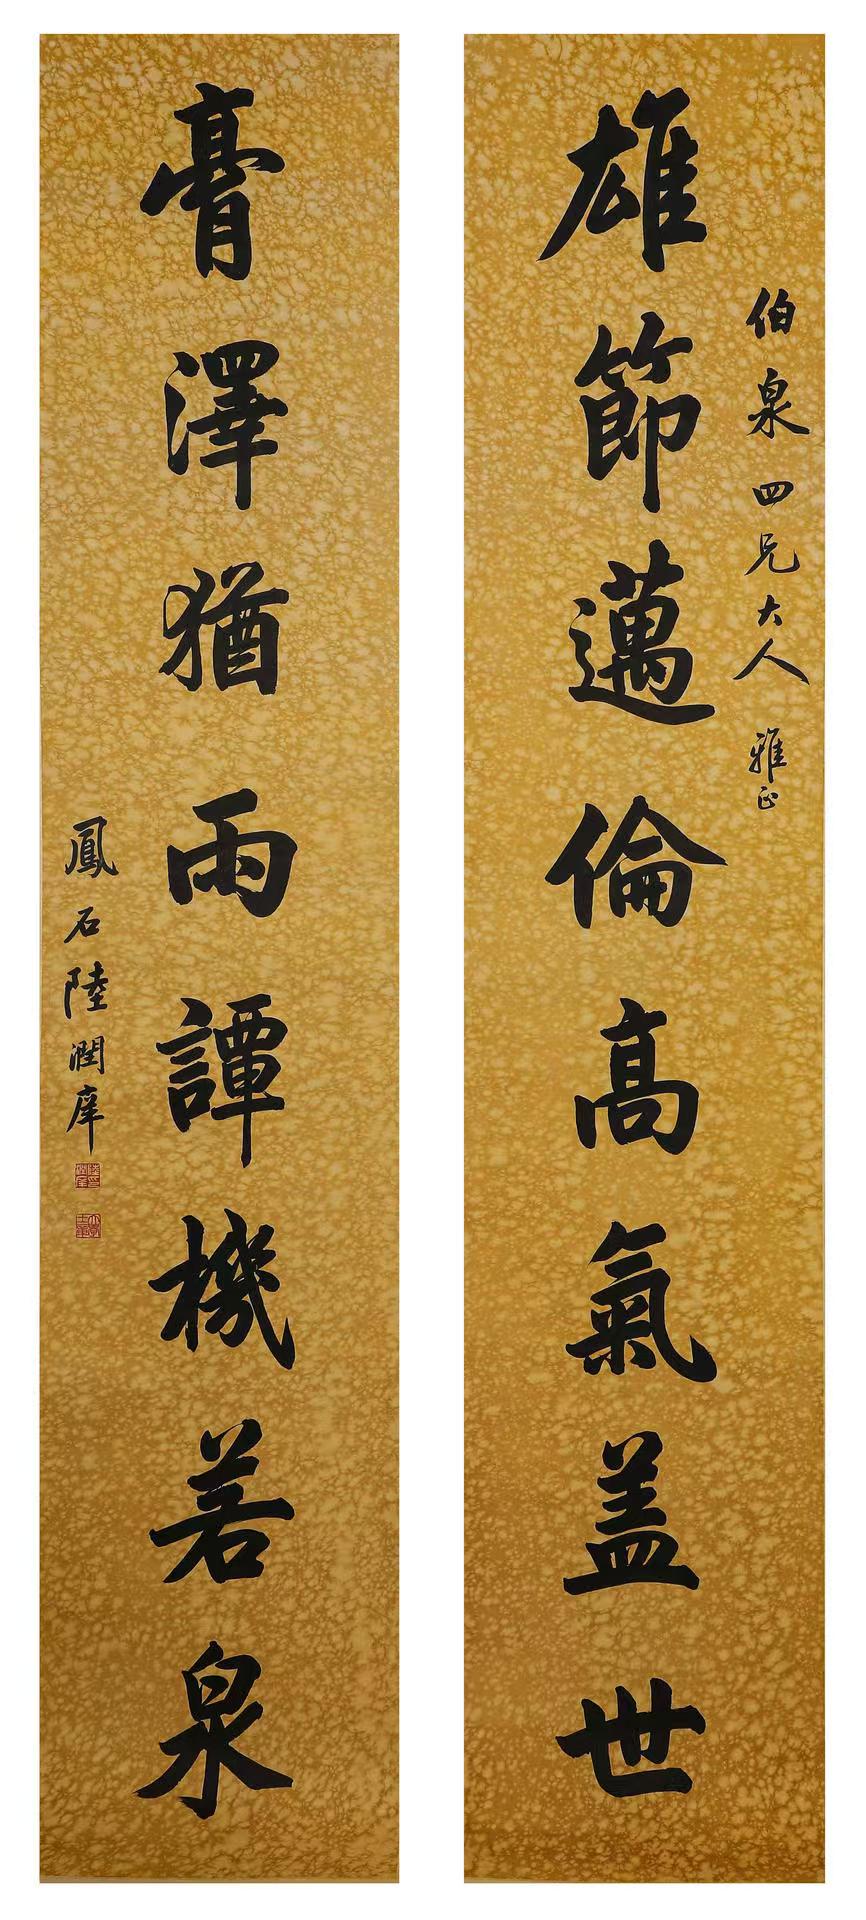 雄節邁倫高氣盖世
伯泉四兄大人雅正
膏澤猶雨譚機若泉
鳳石陸潤庠